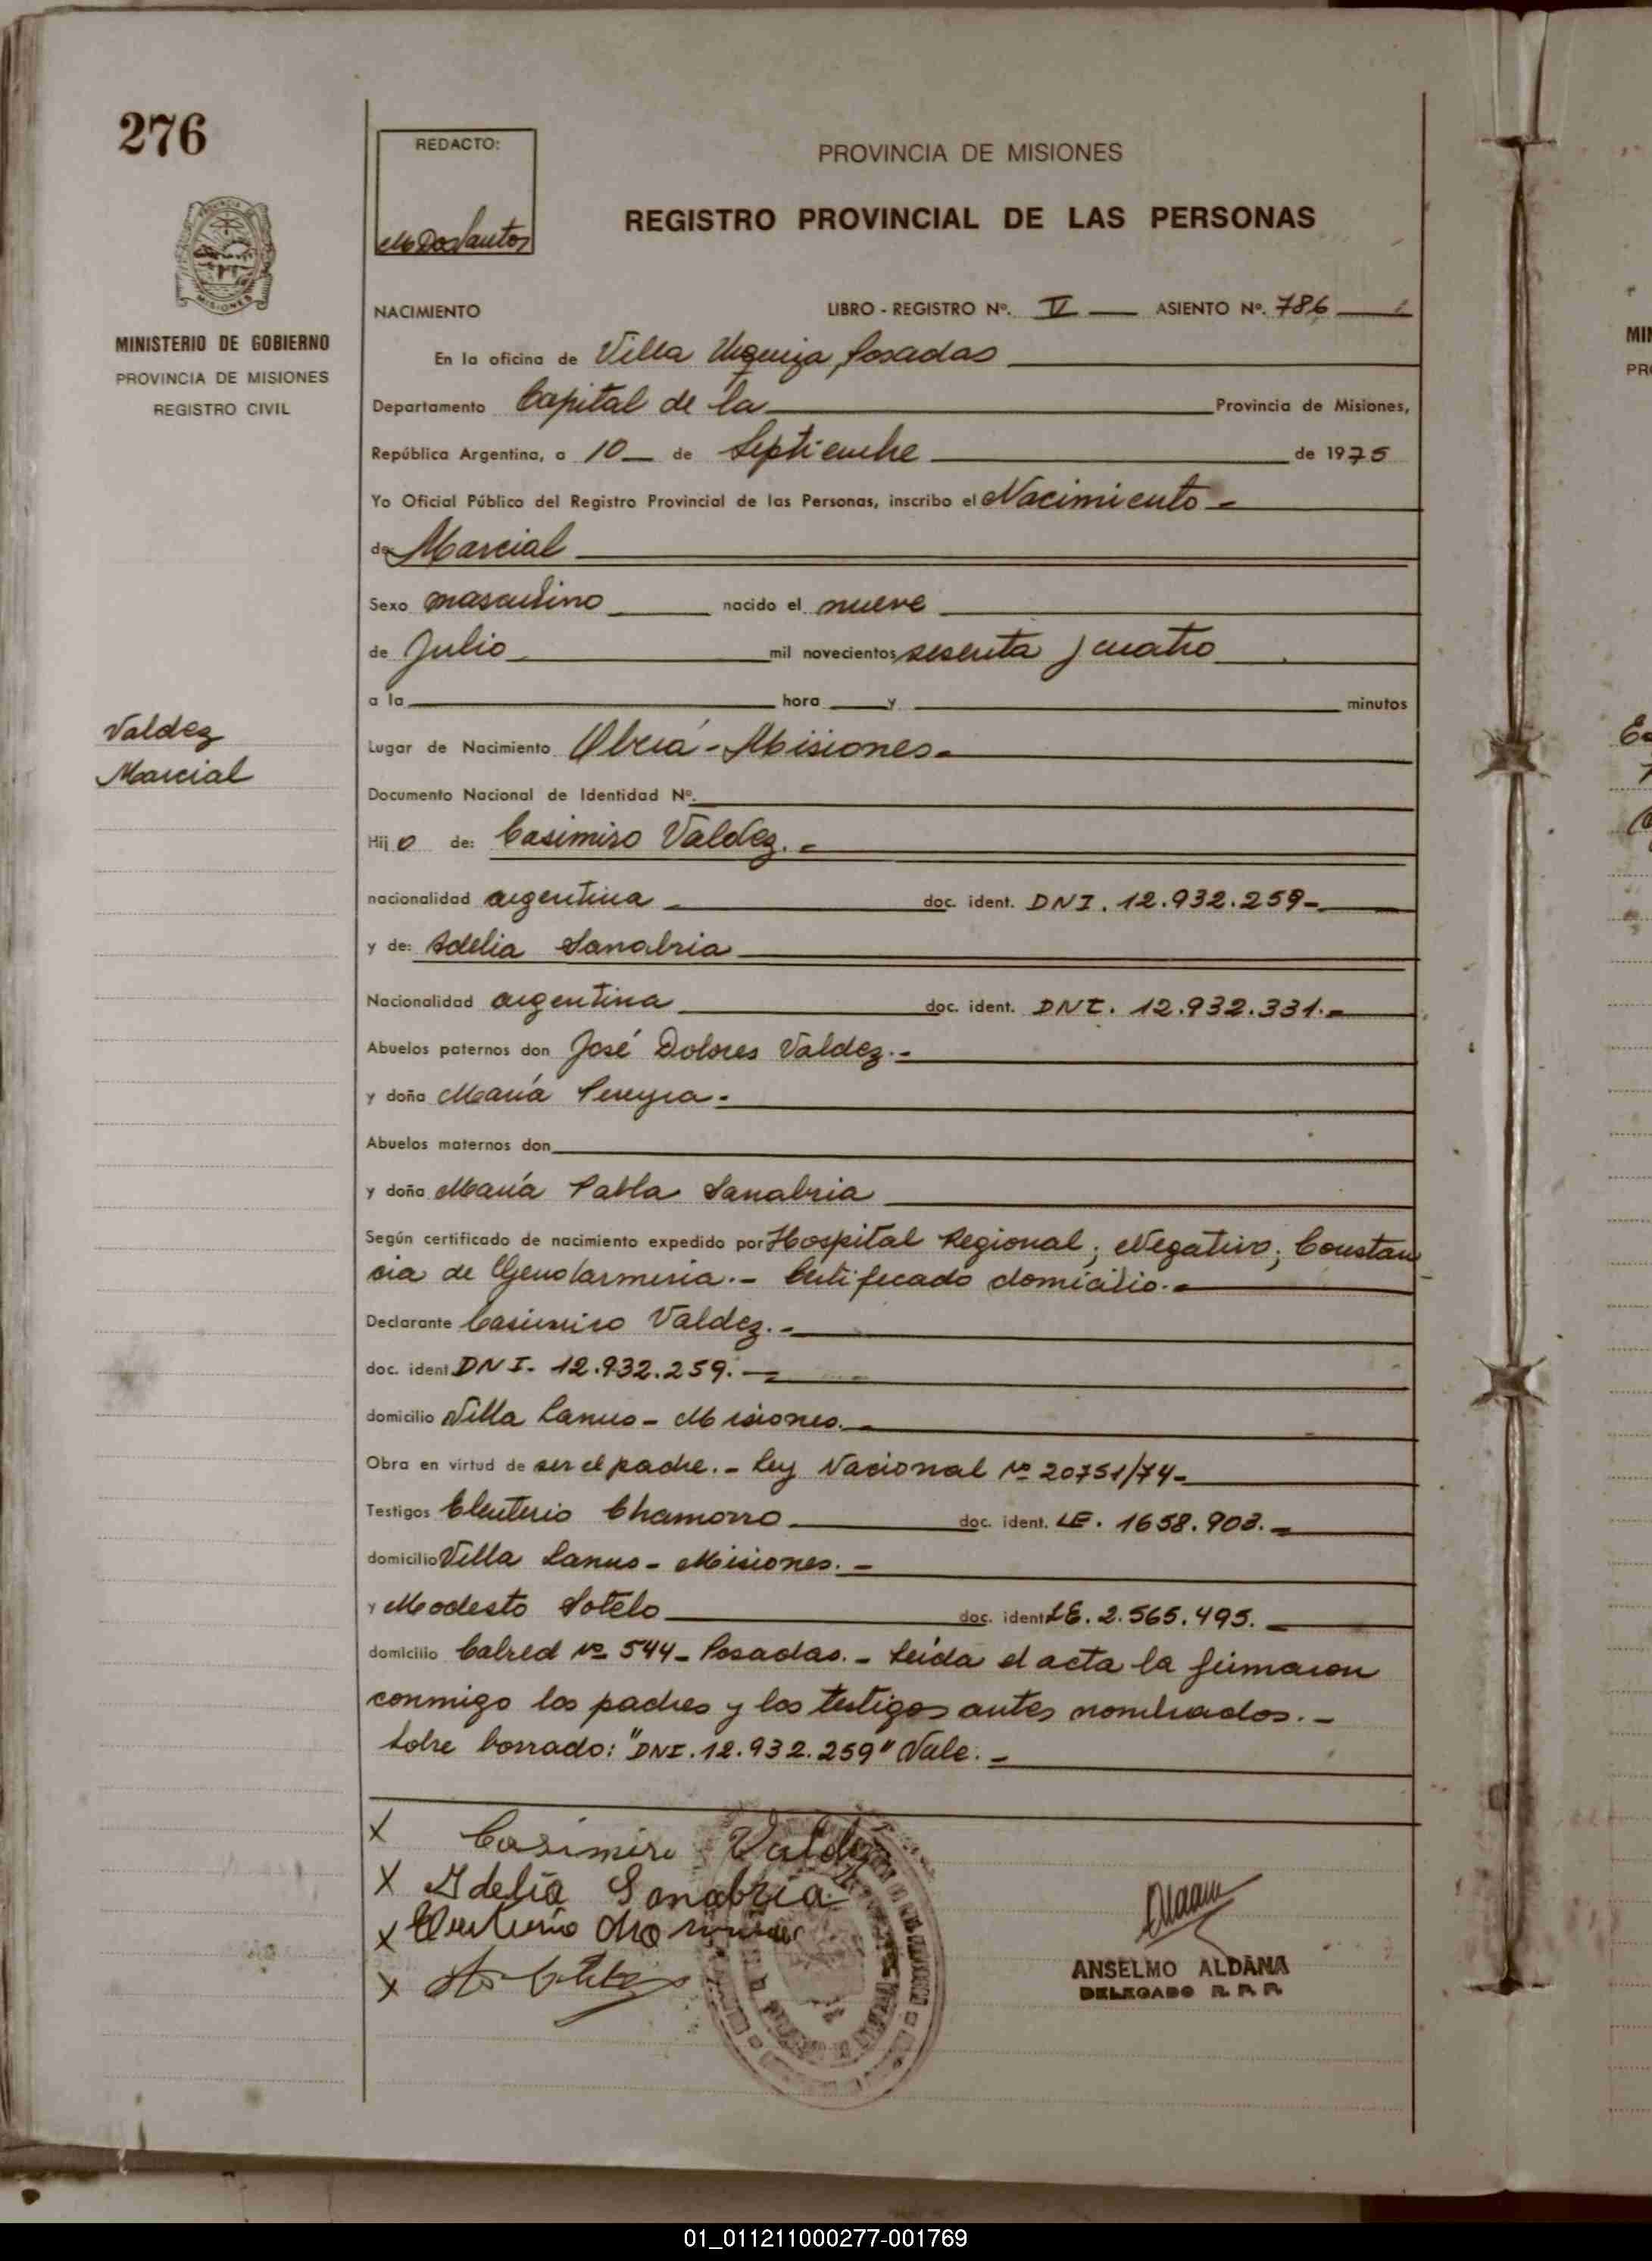 276
REDACTO:
M Dos Santos
PROVINCIA DE MISIONES
REGISTRO PROVINCIAL DE LAS PERSONAS
MISIONES
MINISTERIO DE GOBIERNO
PROVINCIA DE MISIONES
REGISTRO CIVIL
NACIMIENTO LIBRO - REGISTRO Nº. V ASIENTO Nº. 786
En la oficina de Villa Urquiza, Posadas
Departamento Capital de la Provincia de Misiones,
República Argentina, a 10 de Septiembre de 1975
Yo Oficial Público del Registro Provincial de las Personas, inscribo el Nacimiento -
de Marcial
Sexo masculino nacido el nueve
de Julio mil novecientos sesenta y cuatro
a la hora y minutos
Valdez
Marcial
Lugar de Nacimiento Oberá - Misiones -
Documento Nacional de Identidad Nº.
Hijo de: Casimiro Valdez. -
nacionalidad argentina doc. ident. DNI. 12.932.259-
y de: Adelia Sanabria
Nacionalidad argentina doc. ident. DNI. 12.932.331.-
Abuelos paternos don José Dolores Valdez.-
y doña María Pereyra -
Abuelos maternos don
y doña María Pabla Sanabria
Según certificado de nacimiento expedido por Hospital Regional; Negativo; Constan
cia de Gendarmeria.- Certificado domicilio.-
Declarante Casimiro Valdez.-
doc. ident DNI- 12.932.259.-
domicilio Villa Lanus - Misiones.
Obra en virtud de ser el padre.- Ley Nacional Nº 20751/74-
Testigos Eleuterio Chamorro doc. ident. LE. 1658.903.-
domicilio Villa Lanus - Misiones. -
y Modesto Sotelo doc. ident LE. 2.565.495.
domicilio Cabred Nº 544 - Posadas. - Leída el acta la firmaron
conmigo los padres y los testigos antes nombrados. -
Sobre borrado: "DNI. 12.932.259" Vale. -
X Casimiro Valdez
X Adelia Sanabria
X Eleuterio Chamorro
X
ANSELMO ALDANA
DELEGADO R. P. P.
01_011211000277-001769